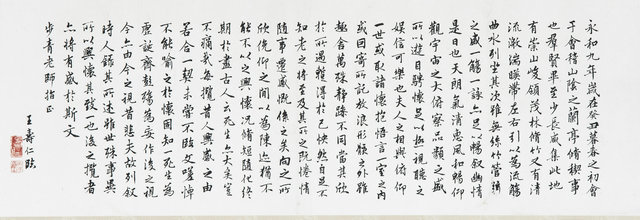 永和九年歲在癸丑暮春之初會
于會稽山陰之蘭亭脩稧事
也羣賢畢至少長咸集此地
有崇山峻領茂林脩竹又有清
流激湍暎帶左右引以為流觴
曲水列坐其次雖無絲竹管弦
之盛一觴一詠亦足以暢叙幽情
是日也天朗氣清惠風和暢仰
觀宇宙之大俯察品類之盛
所以遊目騁懷足以極視聽之
娛信可樂也夫人之相與俯仰
一世或取諸懷抱悟言一室之內
或因寄所託放浪形骸之外雖
趣舍萬殊靜躁不同當其欣
於所遇蹔得於己怏然自足不
知老之將至及其所之既惓情
隨事遷感慨係之矣向之所
欣俛仰之間以為陳迹猶不
能不以之興懷況脩短隨化終
期於盡古人云死生亦大矣豈
不痛哉每攬昔人興感之由
若合一契未嘗不臨文嗟悼
不能喻之於懷固知一死生為
虛誕齊彭殤為妄作後之視
今亦由今之視昔悲夫故列叙
時人錄其所述雖世殊事異
所以興懷其致一也後之攬者
亦將有感於斯文
步青老師指正
王壽仁臨